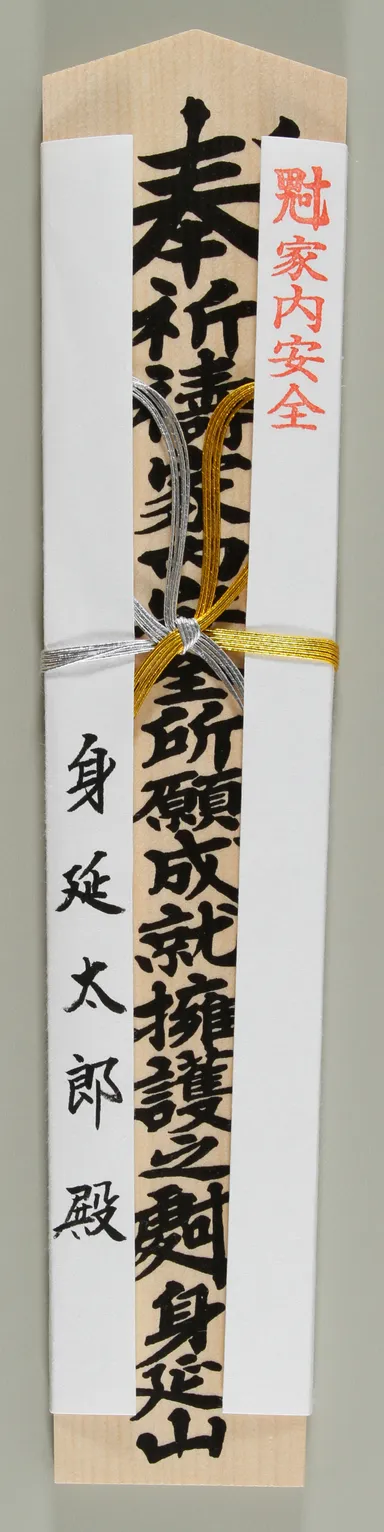 家内安全
奉祈禱家内安全所願成就擁護之
身延山
身延太郎殿